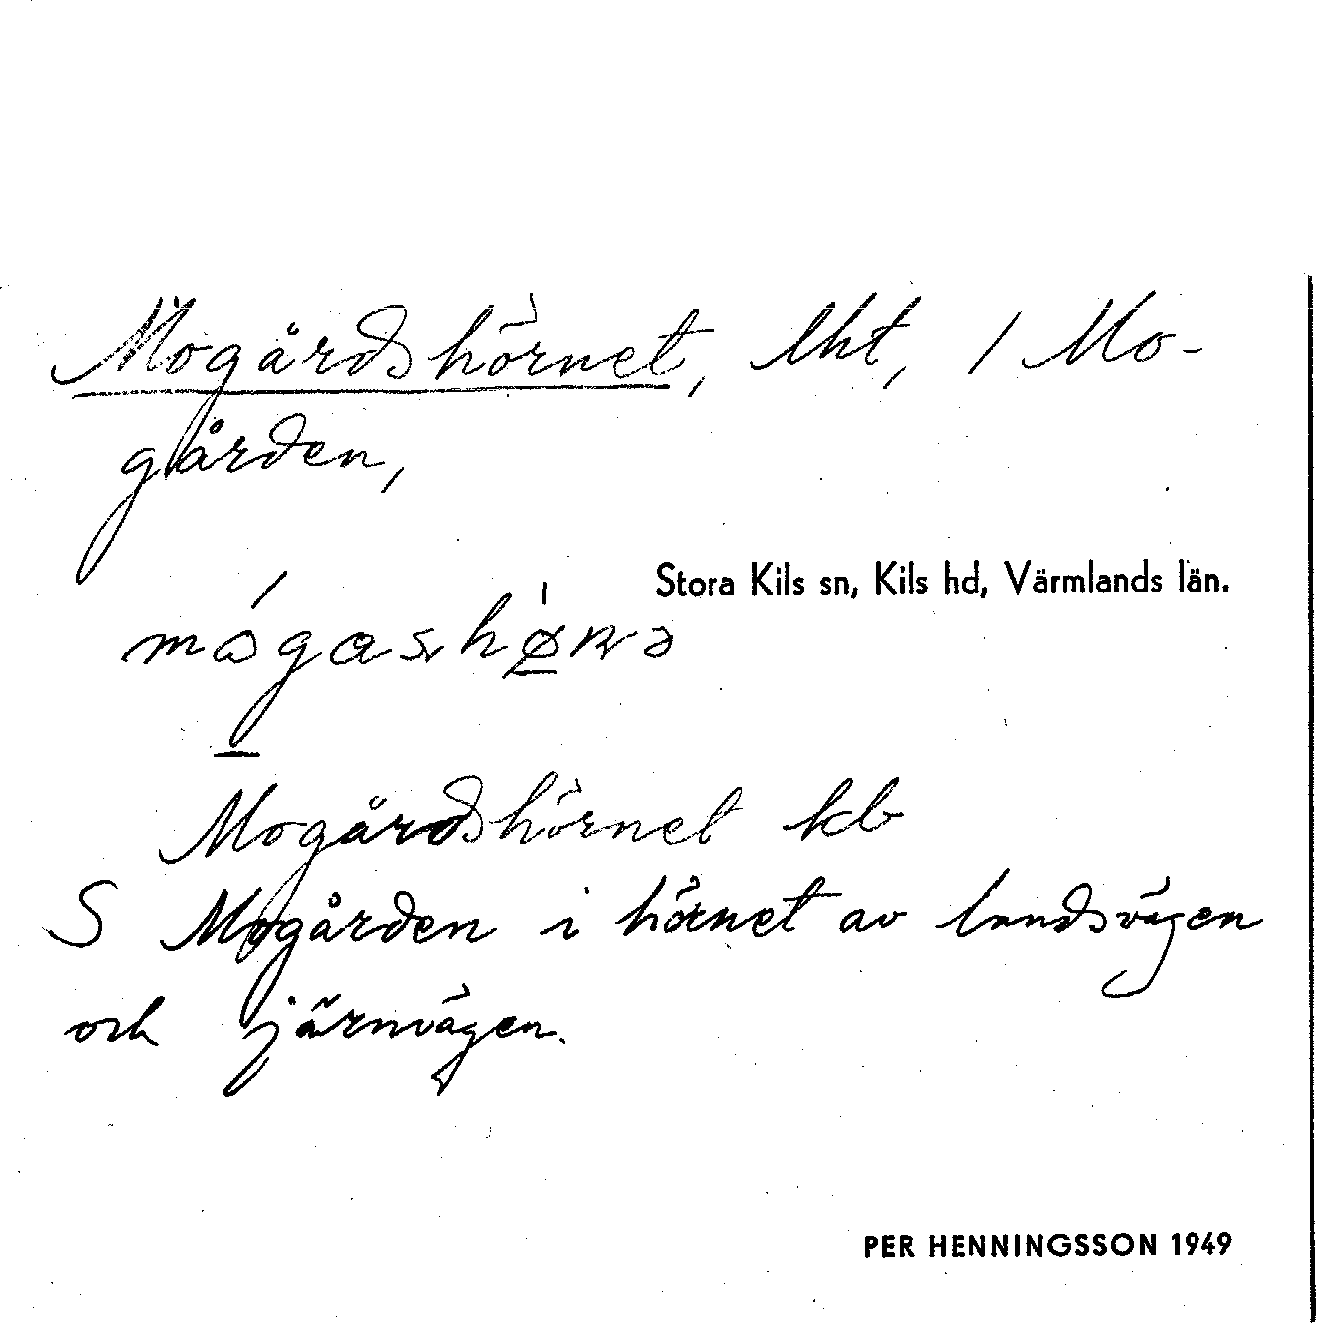 Mogårdshörnet, lht, 1 Mo-
gården,
Stora Kils sn, Kils hd, Värmlands län.
Mogårdshörnet kb
S Mogården i hörnet av landsvägen
och järnvägen.
PER HENNINGSSON 1949